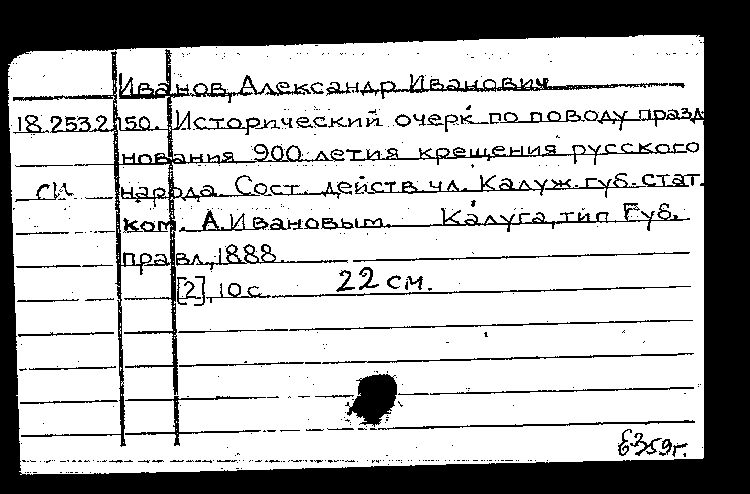 Иванов, Александр Иванович
18.253.2.150. Исторический очерк по поводу празд
нования 900 летия крещения русского
си народа. Сост. действ. чл. Калуж. губ. стат.
ком. А. Ивановым. Калуга, тип Губ.
правл., 1888.
[2], 10 с. 22 см.